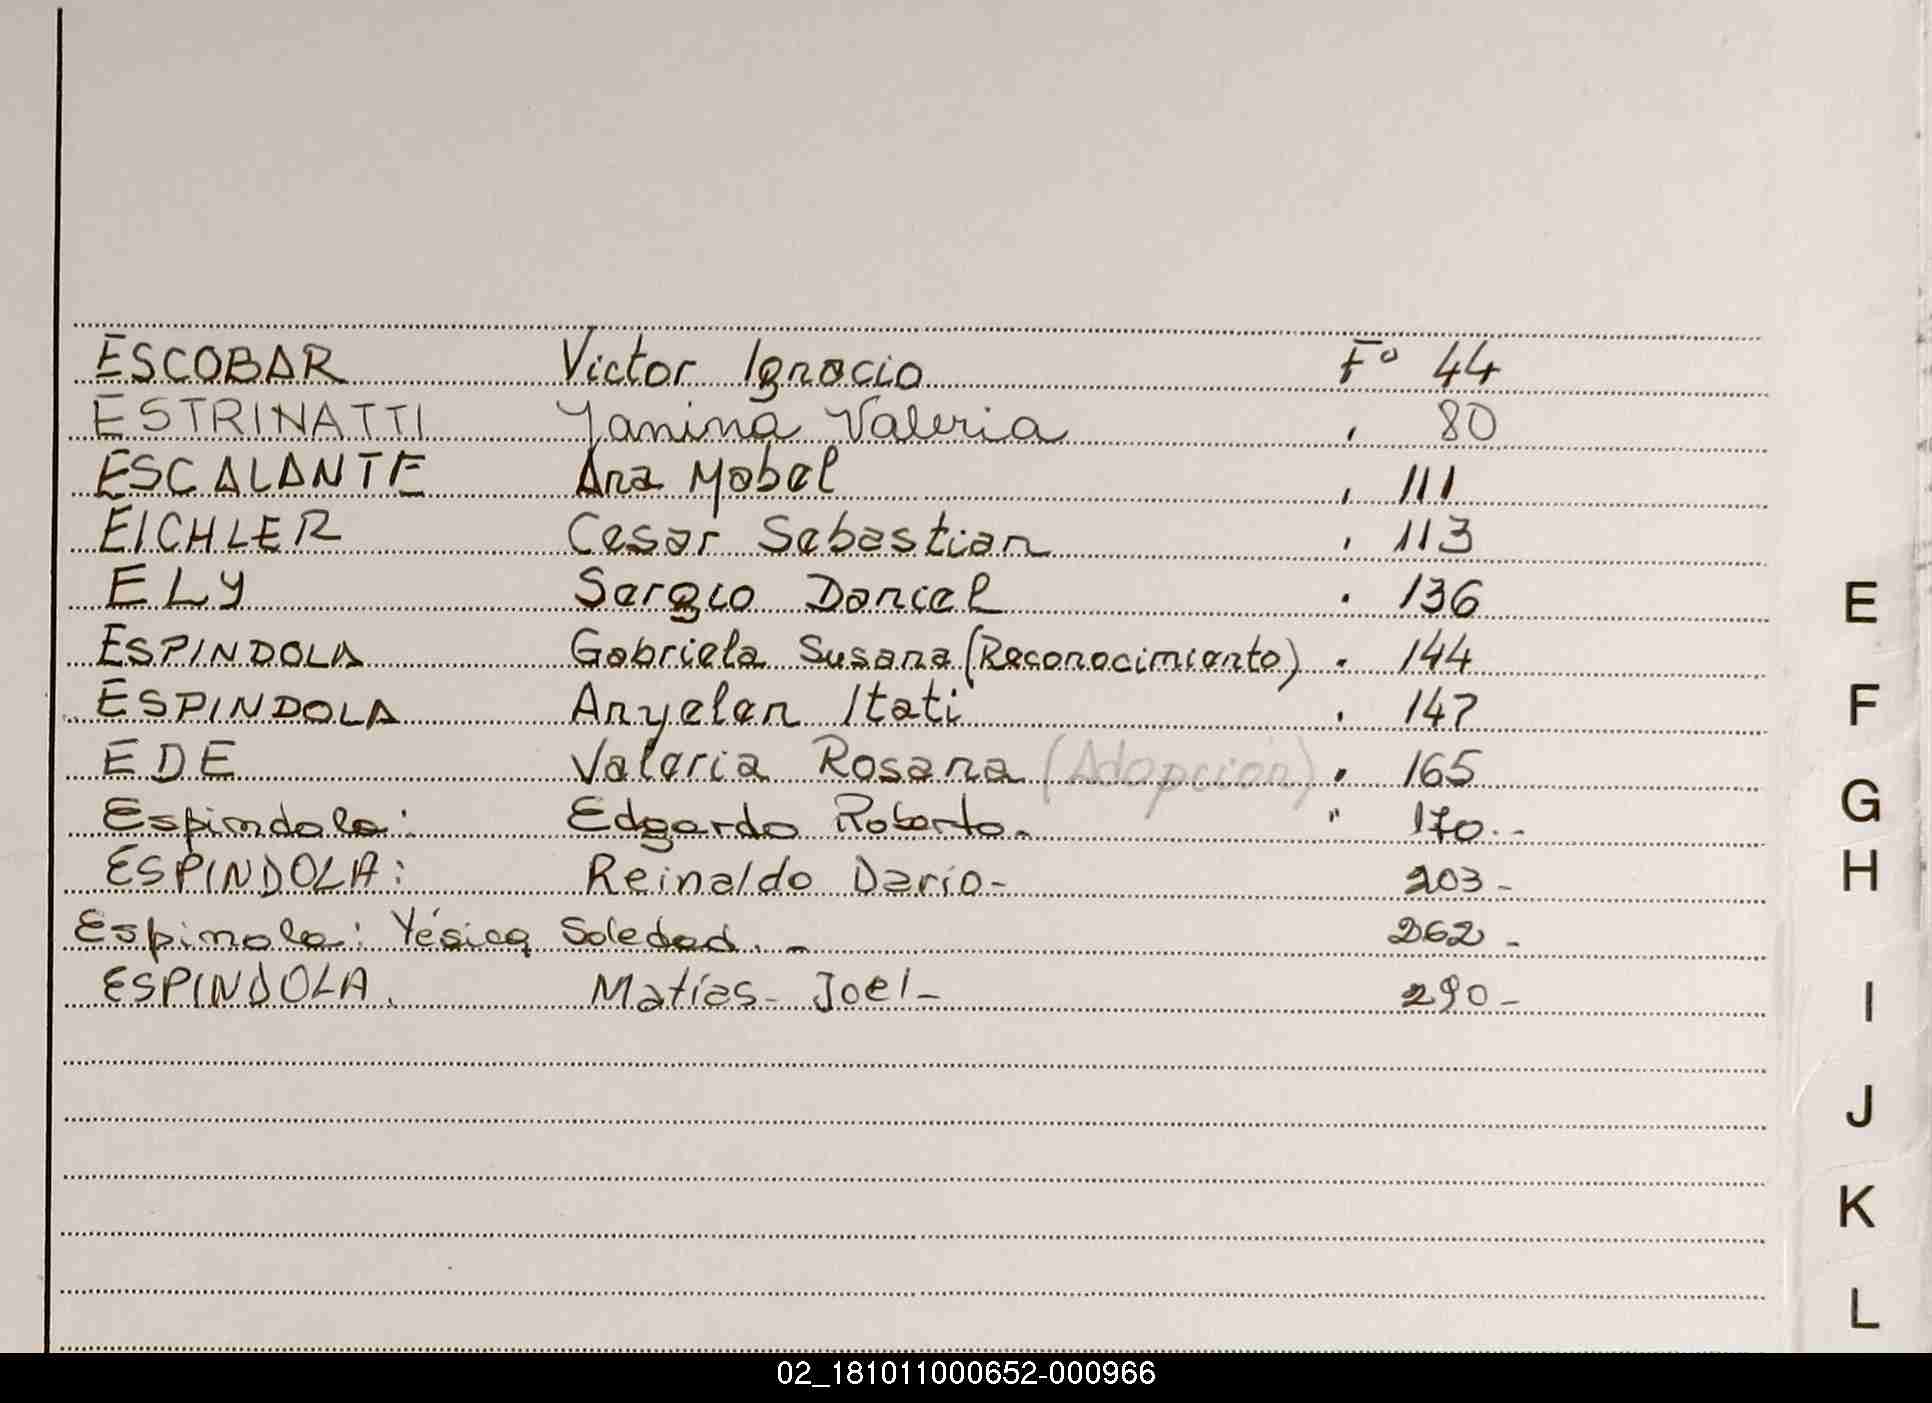 ESCOBAR Victor Ignacio Fº 44
ESTRINATTI Yanina Valeria , 80
ESCALANTE Ana Mabel , 111
EICHLER Cesar Sebastian , 113
ELY Sergio Daniel . 136
ESPINDOLA Gabriela Susana (Reconocimiento) . 144
ESPINDOLA Anyelen Itati . 147
EDE Valeria Rosana (Adopción) . 165
Espindola: Edgardo Roberto. " 170.-
ESPINDOLA: Reinaldo Dario- 203-
Espinola: Yésica Soledad.- 262-
ESPINDOLA. Matías- Joel- 290-
E
F
G
H
I
J
K
L
02_181011000652-000966